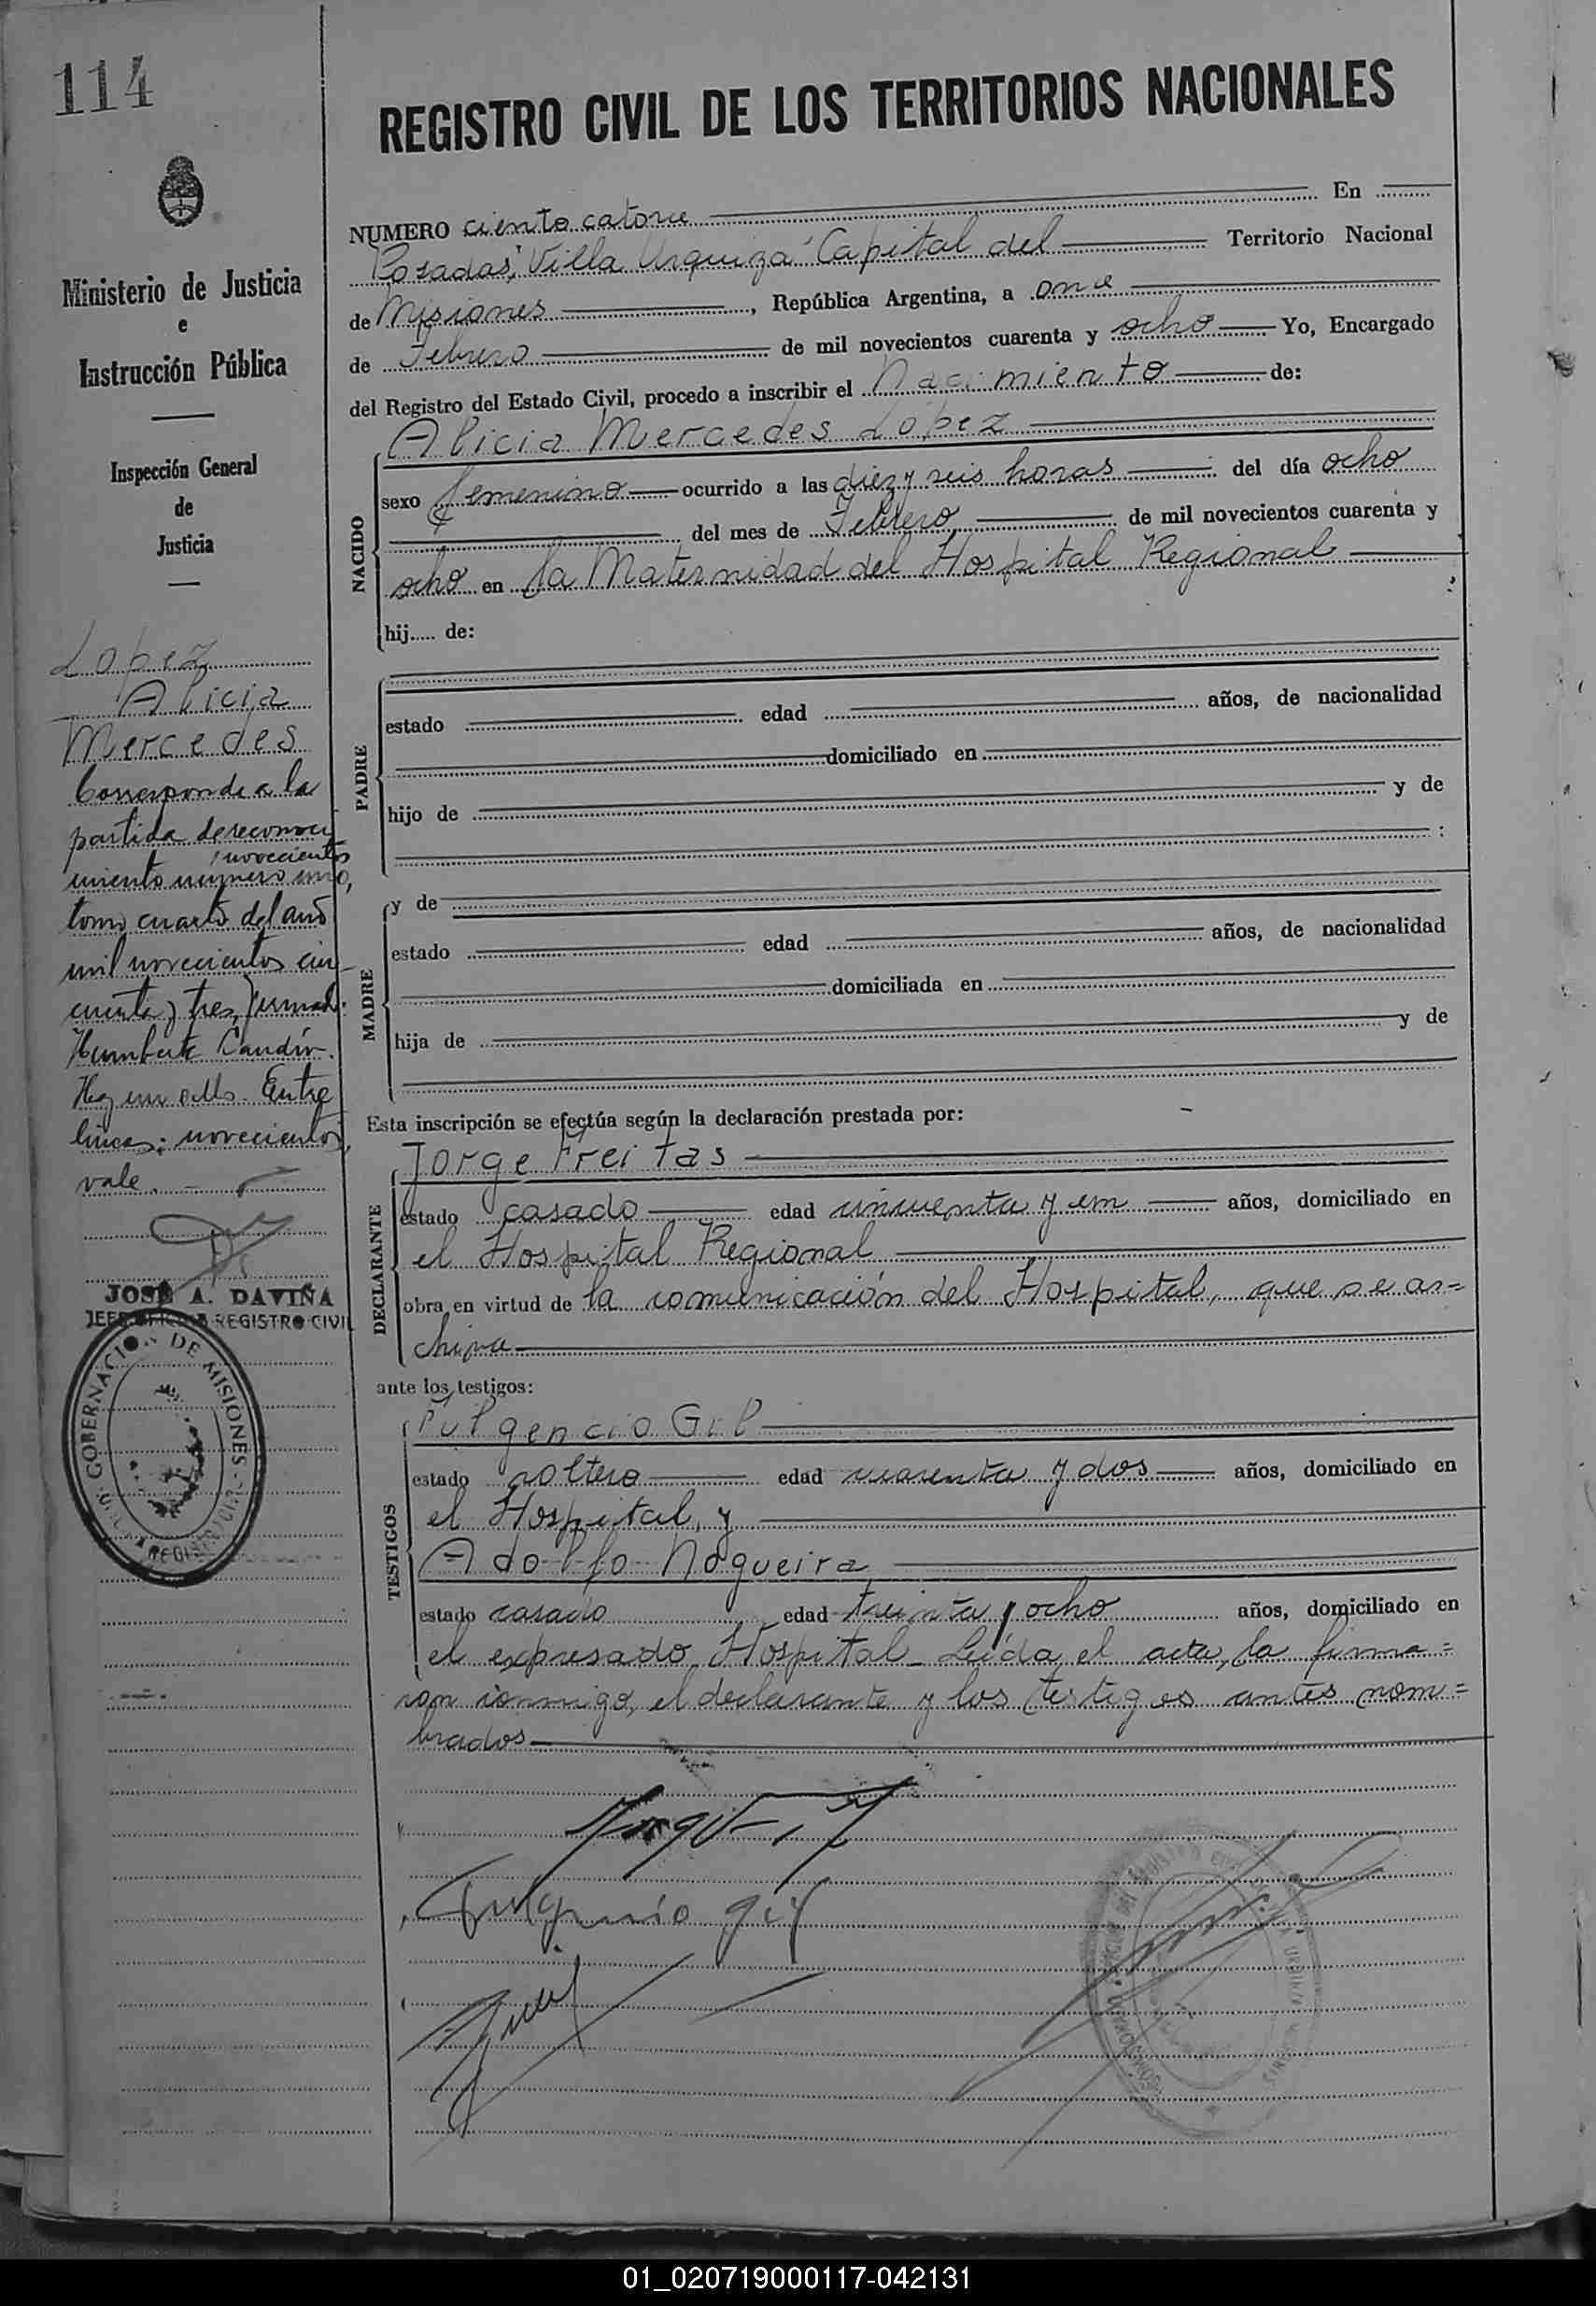 114
REGISTRO CIVIL DE LOS TERRITORIOS NACIONALES
Ministerio de Justicia
e
Instrucción Pública
Inspección General
de
Justicia
Lopez
Alicia
Mercedes
Corresponde a la
partida de reconoci
novecientos
miento número uno,
tomo cuarto del año
mil novecientos cin
cuenta y tres,
Humberto
Hay un sello. Entre
lineas: novecientos,
vale.
JOSÉ A. DAVIÑA
JEFE OFICINA REGISTRO CIVIL
GOBERNACION DE MISIONES
NUMERO ciento catorce En
Posadas, Villa Urquiza Capital del Territorio Nacional
de Misiones, República Argentina, a once
de Febrero de mil novecientos cuarenta y ocho Yo, Encargado
del Registro del Estado Civil, procedo a inscribir el Nacimiento de:
NACIDO
Alicia Mercedes Lopez
sexo femenino ocurrido a las diez y seis horas del día ocho
del mes de Febrero de mil novecientos cuarenta y
ocho en la Maternidad del Hospital Regional
hij..... de:
PADRE
estado edad años, de nacionalidad
domiciliado en
hijo de y de
:
MADRE
y de
estado edad años, de nacionalidad
domiciliada en
hija de y de
Esta inscripción se efectúa según la declaración prestada por:
DECLARANTE
Jorge Freitas
estado casado edad cincuenta y un años, domiciliado en
el Hospital Regional
obra en virtud de la comunicación del Hospital, que se ar=
chiva
ante los testigos:
TESTIGOS
Fulgencio Gil
estado soltero edad cuarenta y dos años, domiciliado en
el Hospital, y
Adolfo Nogueira
estado casado edad treinta y ocho años, domiciliado en
el expresado Hospital_ Leída el acta, la firma=
ron conmigo, el declarante y los testigos antes nom=
brados
Fulgencio Gil
01_020719000117-042131